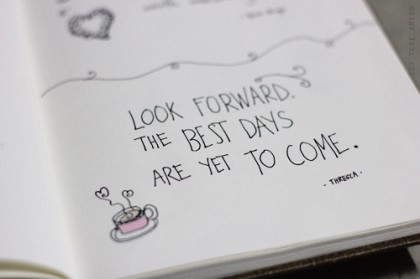 LOOK FORWARD.
THE BEST DAYS
ARE YET TO COME.
- THREGCA -